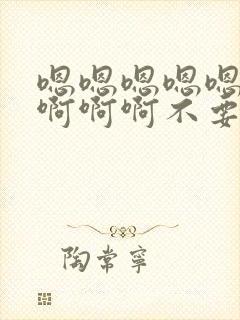 嗯嗯嗯嗯嗯
啊啊啊不要
陶常寧